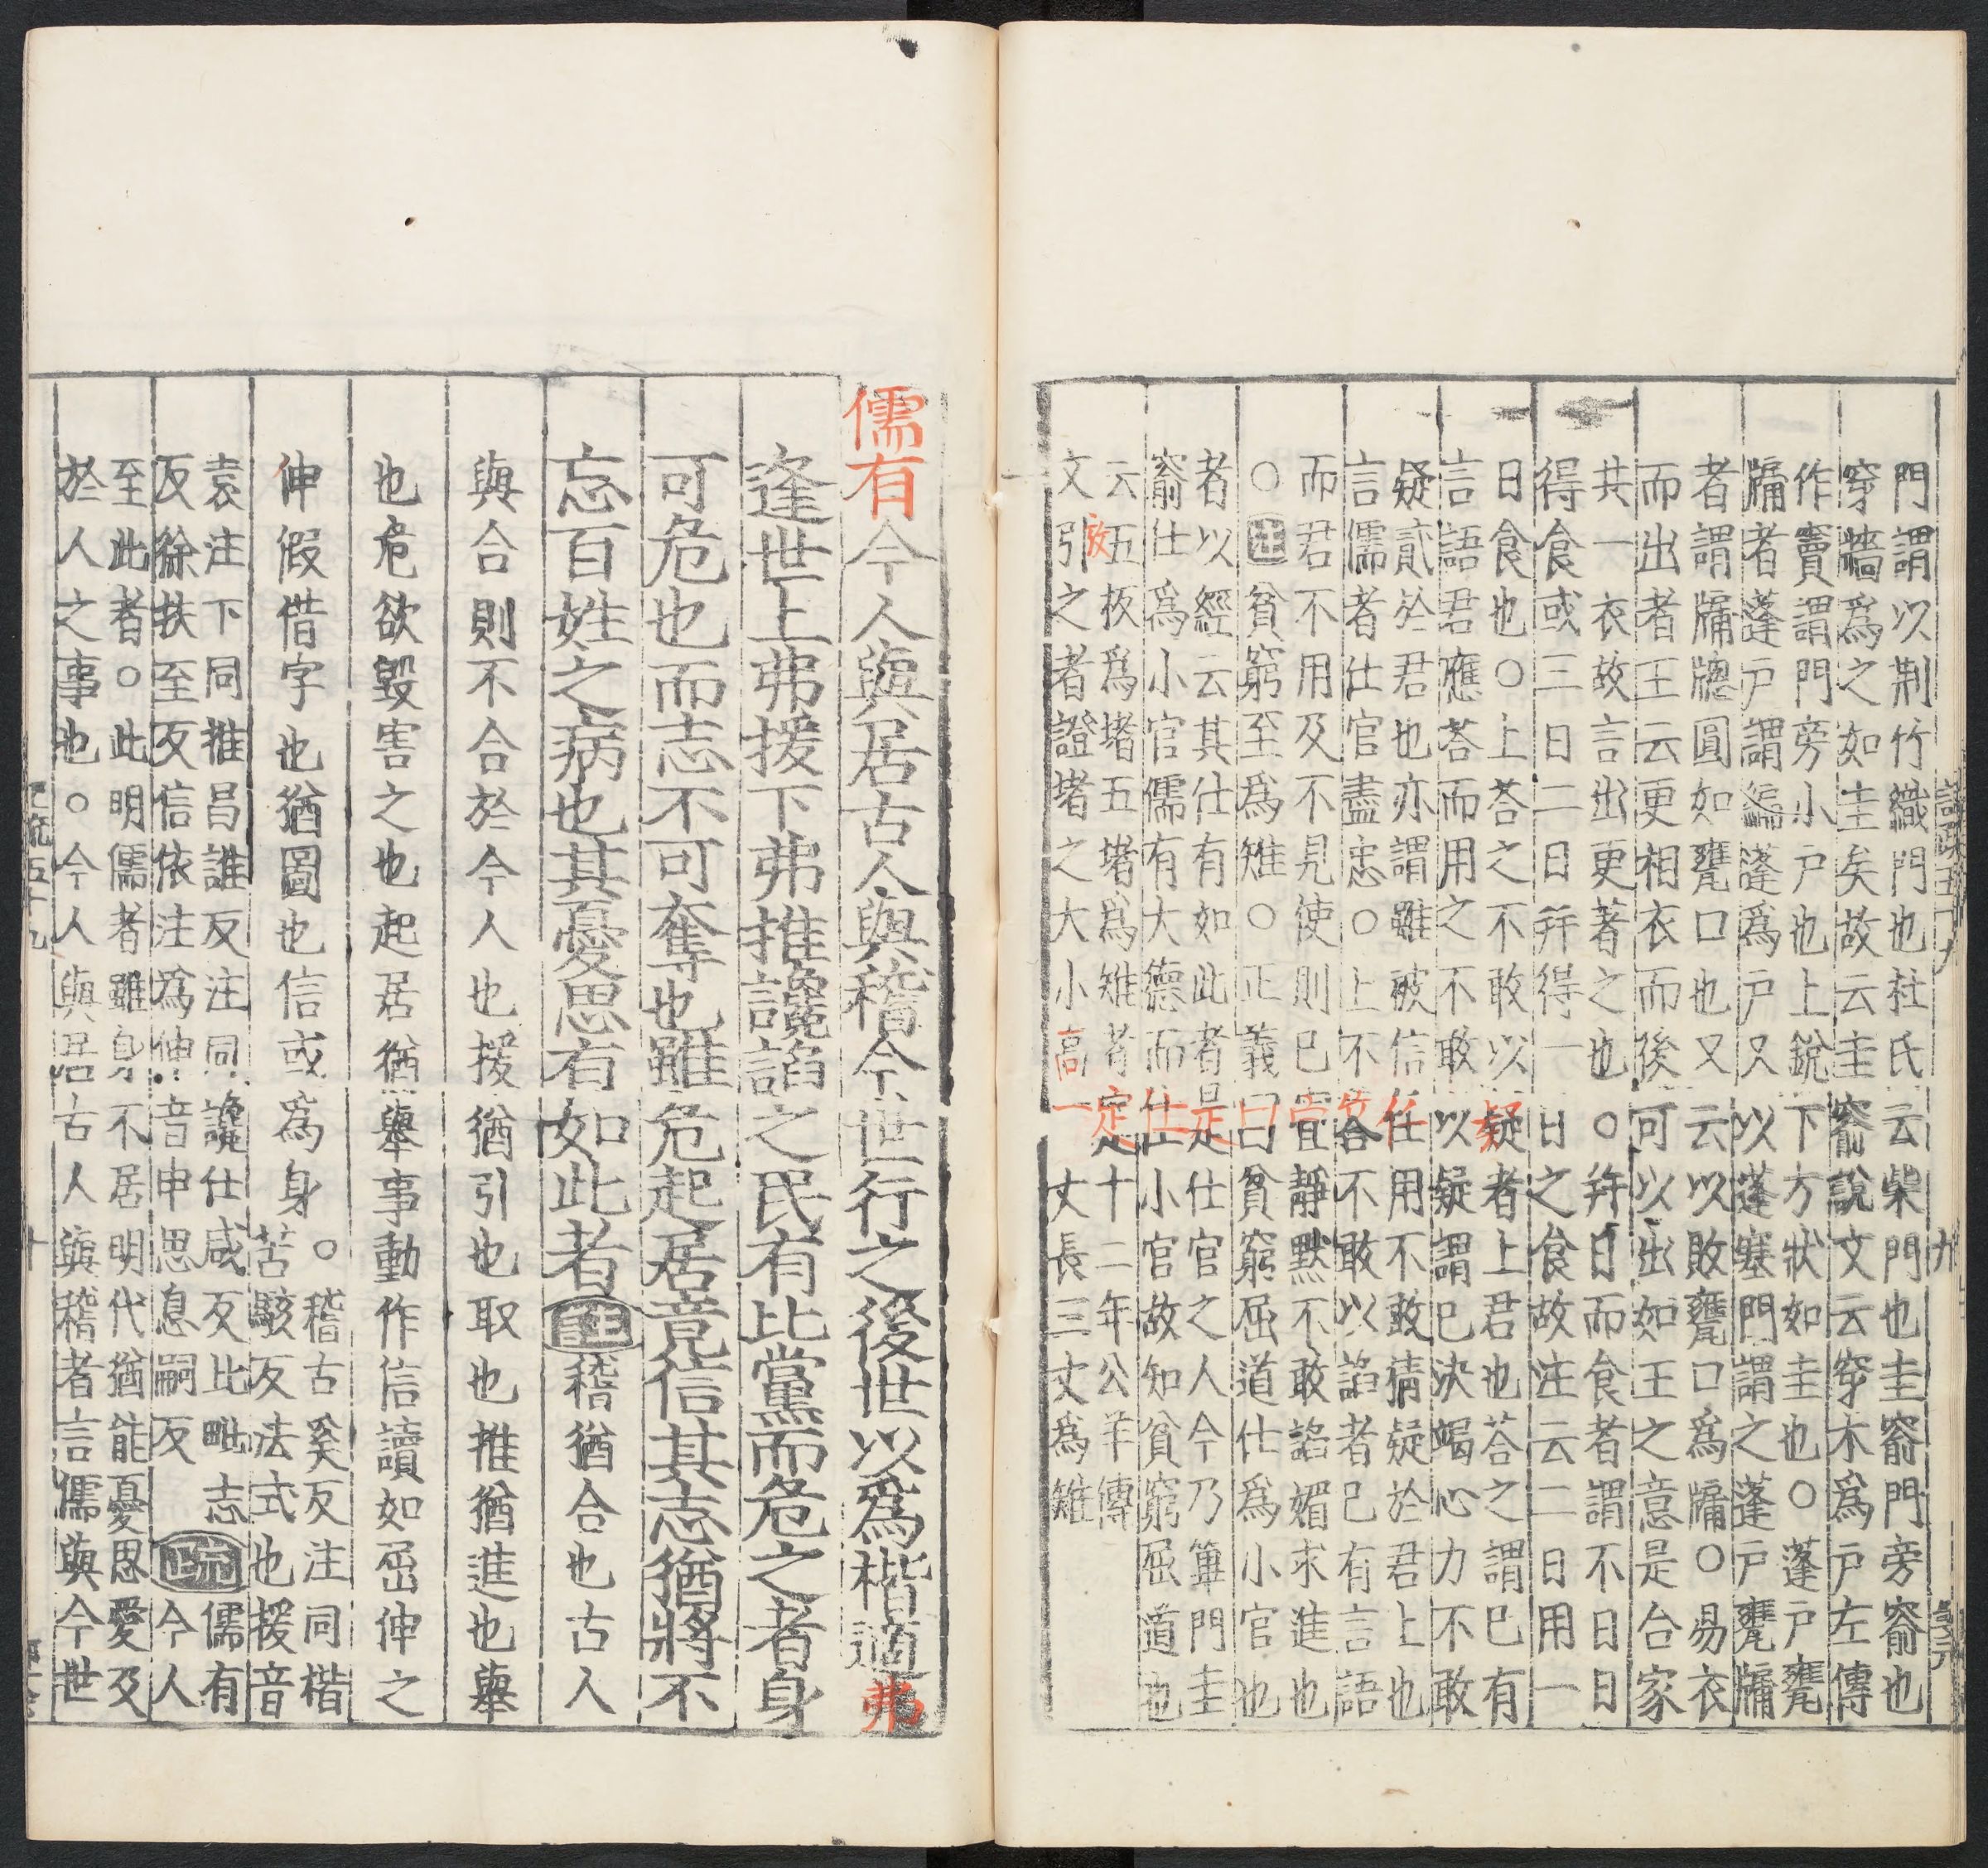 門謂以荆竹織門也杜氏云柴門也圭窬門旁窬也
穿牆爲之如圭矣故云圭窬說文云穿木爲戶左傳
作竇謂門旁小戶也上銳下方狀如圭也○蓬戶甕
牖者蓬戶謂編蓬爲戶又以蓬塞門謂之蓬戶甕牖
者謂牖牕圓如甕口也又云以敗甕口爲牖○易衣
而出者王云更相衣而後可以出如王之意是合家
共一衣故言出更著之也○幷日而食者謂不日日
得食或三日二日幷得一日之食故注云二日用一
日食也○上荅之不敢以疑者上君也荅之謂已有
言語君應荅而用之不敢以疑謂已決竭心力不敢
疑貳於君也亦謂雖被信任用不敢猜疑於君上也
言儒者仕官盡忠○上不荅不敢以諂者已有言語
而君不用及不見使則已宜靜默不敢諂媚求進也
○注貧窮至爲雉○正義曰貧窮屈道仕爲小官也
者以經云其仕有如此者是仕官之人今乃篳門圭
窬仕爲小官儒有大德而仕小官故知貧窮屈道也
云五板爲堵五堵爲雉者定十二年公羊傳
文引之者證堵之大小高一丈長三丈爲雉
儒有今人與居古人與稽今世行之後世以爲楷適弗
逢世上弗援下弗推讒諂之民有比黨而危之者身
可危也而志不可奪也雖危起居竟信其志猶將不
忘百姓之病也其憂思有如此者注稽猶合也古人
與合則不合於今人也援猶引也取也推猶進也舉
也危欲毀害之也起居猶舉事動作信讀如屈伸之
伸假借字也猶圖也信或爲身○稽古奚反注同楷
苦駭反法式也援音
袁注下同推昌誰反注同讒仕咸反比毗志
反徐扶至反信依注爲伸音申思息嗣反疏儒有今人
至此者○此明儒者雖身不居明代猶能憂思愛及
於人之事也○今人與居古人與稽者言儒與今世